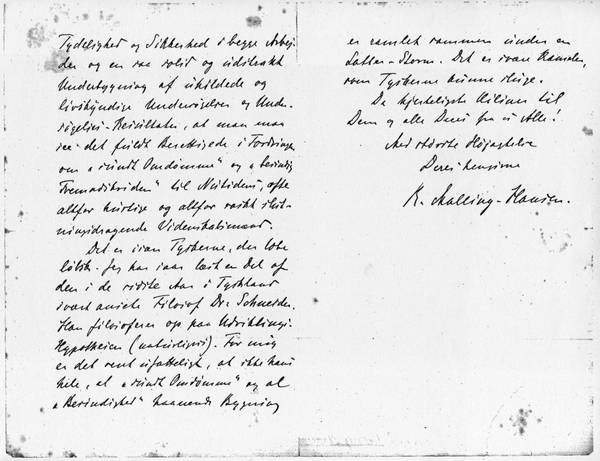 Tydelighed og Sikkerhed i begge Arbej-
der og en saa solid og udstrakt
Underbygning af
livskyndige Underviselses og Unde-
Resultater, at man maa
se det fuldt Berettigede i Fordringen
om "sundt Omdømme" og "besindig
Fremadskriden" til Nutidens, ofte
altfor hurtige og altfor raskt slut-
ningsdragende Videnskabsmænd.
Det er især Tyskerne, der løbe
løbsk. Jeg har iaar læst en Del af
den i de sidste Aar i Tyskland
svært ansete Filosof Dr. Schneider.
Han filosoferer op paa Udviklings-
Hypothesen (naturligvis). For mig
er det rent ufatteligt, at ikke hans
hele, al "sundt Omdømme" og al
"Besindighed" haanende Bygning
er ramlet sammen under en
Latter-Storm. Det er svare Kameler,
som Tyskerne kunne sluge.
De hjerteligste Hilsner til
Dem og alle Deres fra os Alle!
Med største Højagtelse
Deres hengivne
R. Malling-Hansen.